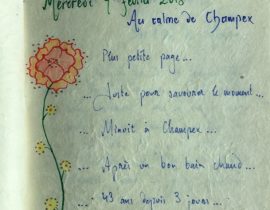 Mercredi 7 février 2018
Au calme de Champex
Plus petite page...
... Juste pour savourer le moment...
... Minuit à Champex...
... Après un bon bain chaud...
... 43 ans depuis 3 jours...